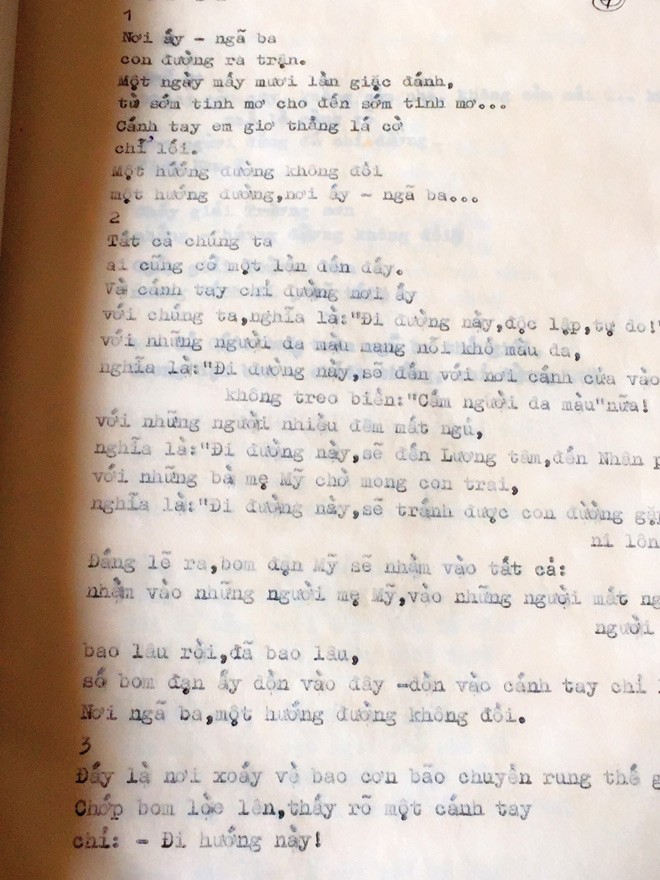 1
Nơi ấy - ngã ba
con đường ra trận.
Một ngày mấy mươi lần giặc đánh,
từ sớm tinh mơ cho đến sớm tinh mơ...
Cánh tay em giơ thẳng lá cờ
chỉ lối.
Một hướng đường không đổi
một hướng đường,nơi ấy - ngã ba...
2
Tất cả chúng ta
ai cũng có một lần đến đấy.
Và cánh tay chỉ đường nơi ấy
với chúng ta,nghĩa là:"Đi đường này,độc lập,tự do!"
với những người da màu mang nỗi khổ màu da,
nghĩa là:"Đi đường này,sẽ đến với nơi cánh cửa vào
không treo biển:"Cấm người da màu"nữa!
với những người nhiều đêm mất ngủ,
nghĩa là:"Đi đường này,sẽ đến Lương tâm,đến Nhân
với những bà mẹ Mỹ chờ mong con trai,
nghĩa là:"Đi đường này,sẽ tránh được con đường
ni lôn
Đáng lẽ ra,bom đạn Mỹ sẽ nhằm vào tất cả:
nhằm vào những người mẹ Mỹ,vào những người mất
người
bao lâu rồi,đã bao lâu,
số bom đạn ấy dồn vào đây -dồn vào cánh tay chỉ
Nơi ngã ba,một hướng đường không đổi.
3
Đấy là nơi xoáy về bao cơn bão chuyển rung thế
Chớp bom lòe lên,thấy rõ một cánh tay
chỉ: - Đi hướng này!